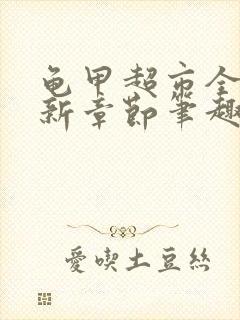 龟甲超市全
新章節筆趣
愛喫土豆絲